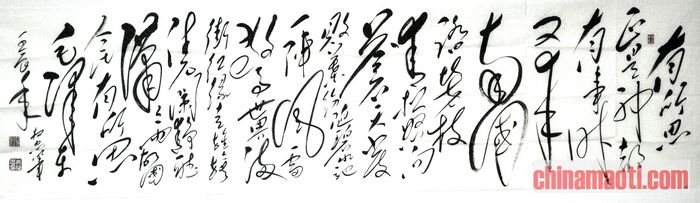 有所思
正是神都
有事时
又来
南国
踏芳枝
青松怒向
苍天发
败叶纷随碧水驰
一阵风雷
惊世界满
街红绿走旌旗
凭阑静听
潇
潇雨故国
人民有所思
毛泽东
壬辰年
chinamaoti.com